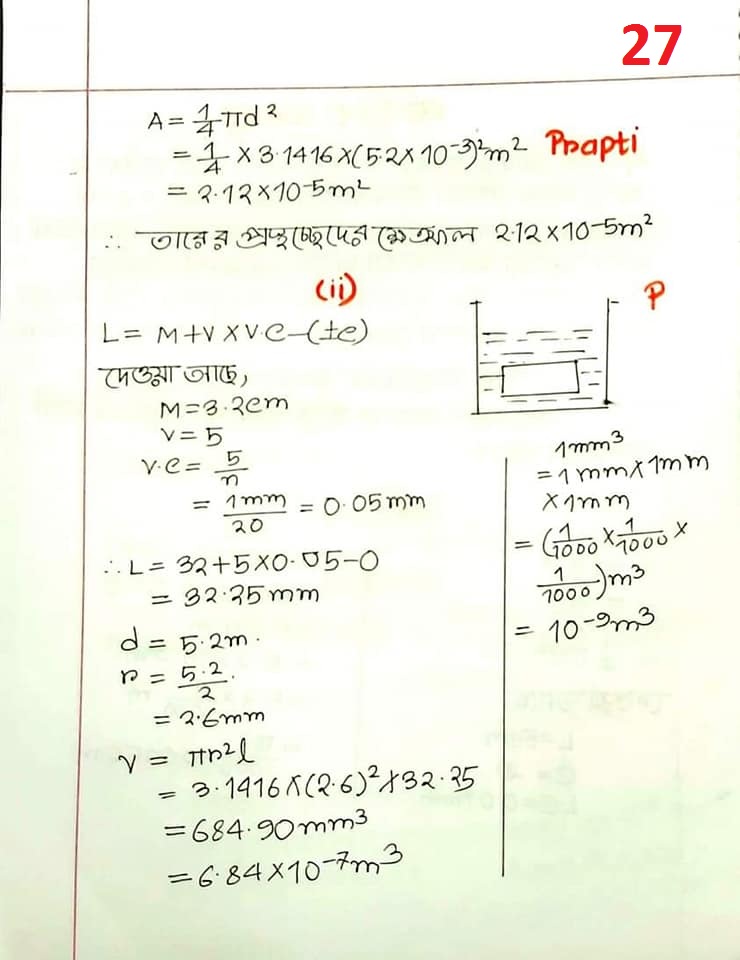 27
A = 1/4 πd²
= 1/4 × 3.1416 × (5.2 × 10⁻³)² m²
Prapti
= 2.12 × 10⁻⁵ m²
∴ তারের প্রস্থচ্ছেদের ক্ষেত্রফল 2.12 × 10⁻⁵ m²
(ii)
P
L = M + V × V.C – (±e)
দেওয়া আছে,
M = 3.2 cm
V = 5
V.C = 5/n
= 1mm/20 = 0.05 mm
∴ L = 32 + 5 × 0.05 – 0
= 32.25 mm
d = 5.2 m.
r = 5.2/2.
= 2.6 mm
V = πr²l
= 3.1416 × (2.6)² × 32.25
= 684.90 mm³
= 6.84 × 10⁻⁷ m³
1 mm³
= 1 mm × 1 mm
× 1 mm
= (1/1000 × 1/1000 ×
1/1000) m³
= 10⁻⁹ m³